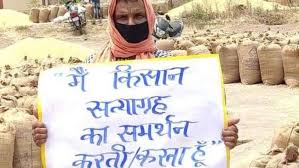 "मैं किसान
सत्याग्रह
का समर्थन
करती/करता हूँ"